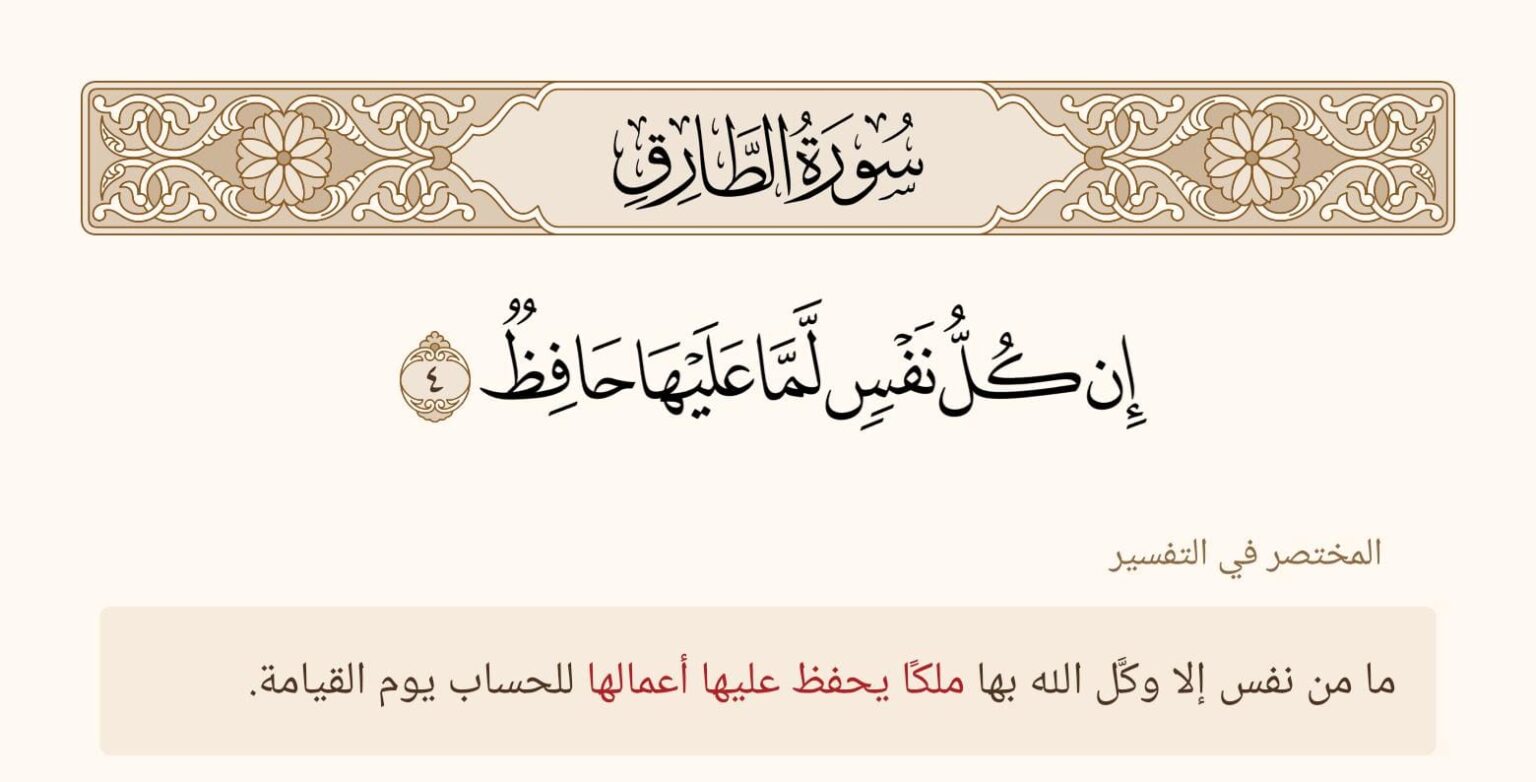 سُورَةُ الطَّارِقِ
إِن كُلُّ نَفْسٍ لَّمَّا عَلَيْهَا حَافِظٌ ٤
المختصر في التفسير
ما من نفس إلا وكَّل الله بها ملكًا يحفظ عليها أعمالها للحساب يوم القيامة.